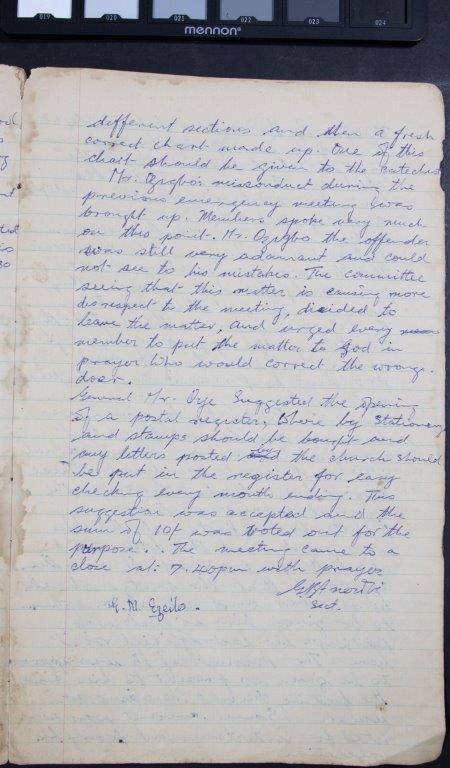 019 020 021 022 023 024
mennon
different sections and then a fresh
correct chart made up. One of this
chart should be given to the catechist
Mr. Ozigbo's missonduct during the
previous emergency meeting was
brought up. Members spoke very much
on this point. Mr. Ozigbo the offender
was still very adamant and could
not see to his mistakes. The committee
seeing that this matter is causing more
disrespect to the meeting, decided to
leave the matter, and urged every
member to put the matter to God in
prayer who would correct the wrong-
doer.
General Mr. Oye Suggested the opening
of a postal register, where by stationery
and stamps should be bought and
any letters posted the church should
be put in the register for easy
checking every month ending. This
suggestion was accepted and the
sum of 10/ was voted out for the
purpose. . The meeting came to a
close at 7.40pm with prayer
Sect.
G. M. Ezeilo.